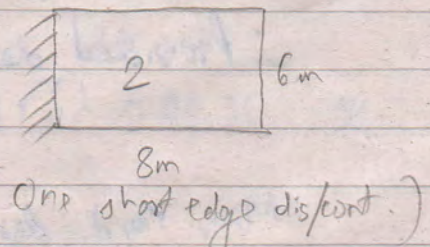 2
6m
8m
One short edge dis/cont.)